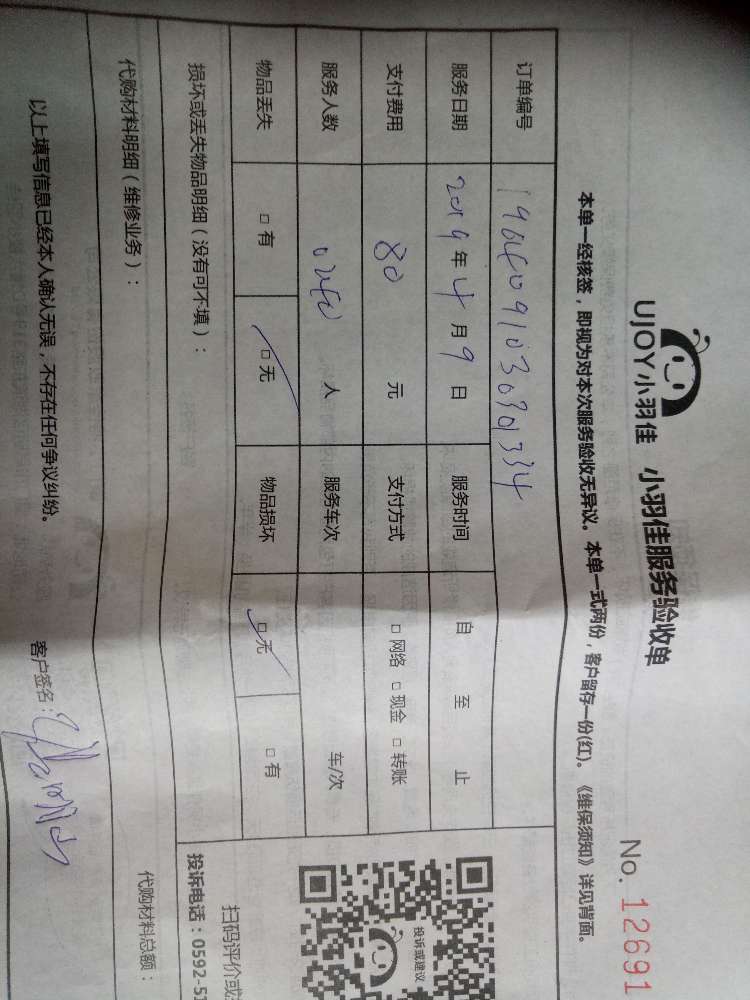 UJOY小羽佳 小羽佳服务验收单
No. 12691
本单一经核签，即视为对本次服务验收无异议。本单一式两份，客户留存一份(红)。《维保须知》详见背面。
订单编号
服务日期 2019 年 4 月 9 日 服务时间 自 至 止
支付费用 80 元 支付方式 □ 网络 □ 现金 □ 转账
服务人数 人 服务车次 车/次
物品丢失 □ 有 □ 无 物品损坏 □ 无 □ 有
损坏或丢失物品明细（没有可不填）：
代购材料明细（维修业务）： 代购材料总额：
以上填写信息已经本人确认无误，不存在任何争议纠纷。 客户签名：
投诉或建议
扫码评价或
投诉电话：0592-51